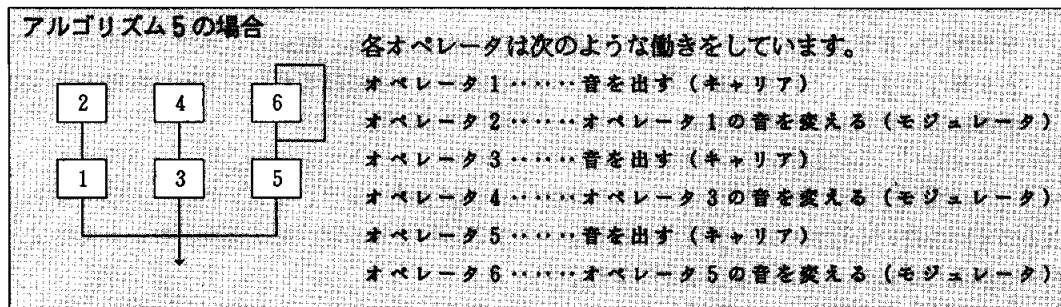 アルゴリズム5の場合
2 4 6
1 3 5
各オペレータは次のような働きをしています。
オペレータ1‥‥‥音を出す(キャリア)
オペレータ2‥‥‥オペレータ1の音を変える(モジュレータ)
オペレータ3‥‥‥音を出す(キャリア)
オペレータ4‥‥‥オペレータ3の音を変える(モジュレータ)
オペレータ5‥‥‥音を出す(キャリア)
オペレータ6‥‥‥オペレータ5の音を変える(モジュレータ)